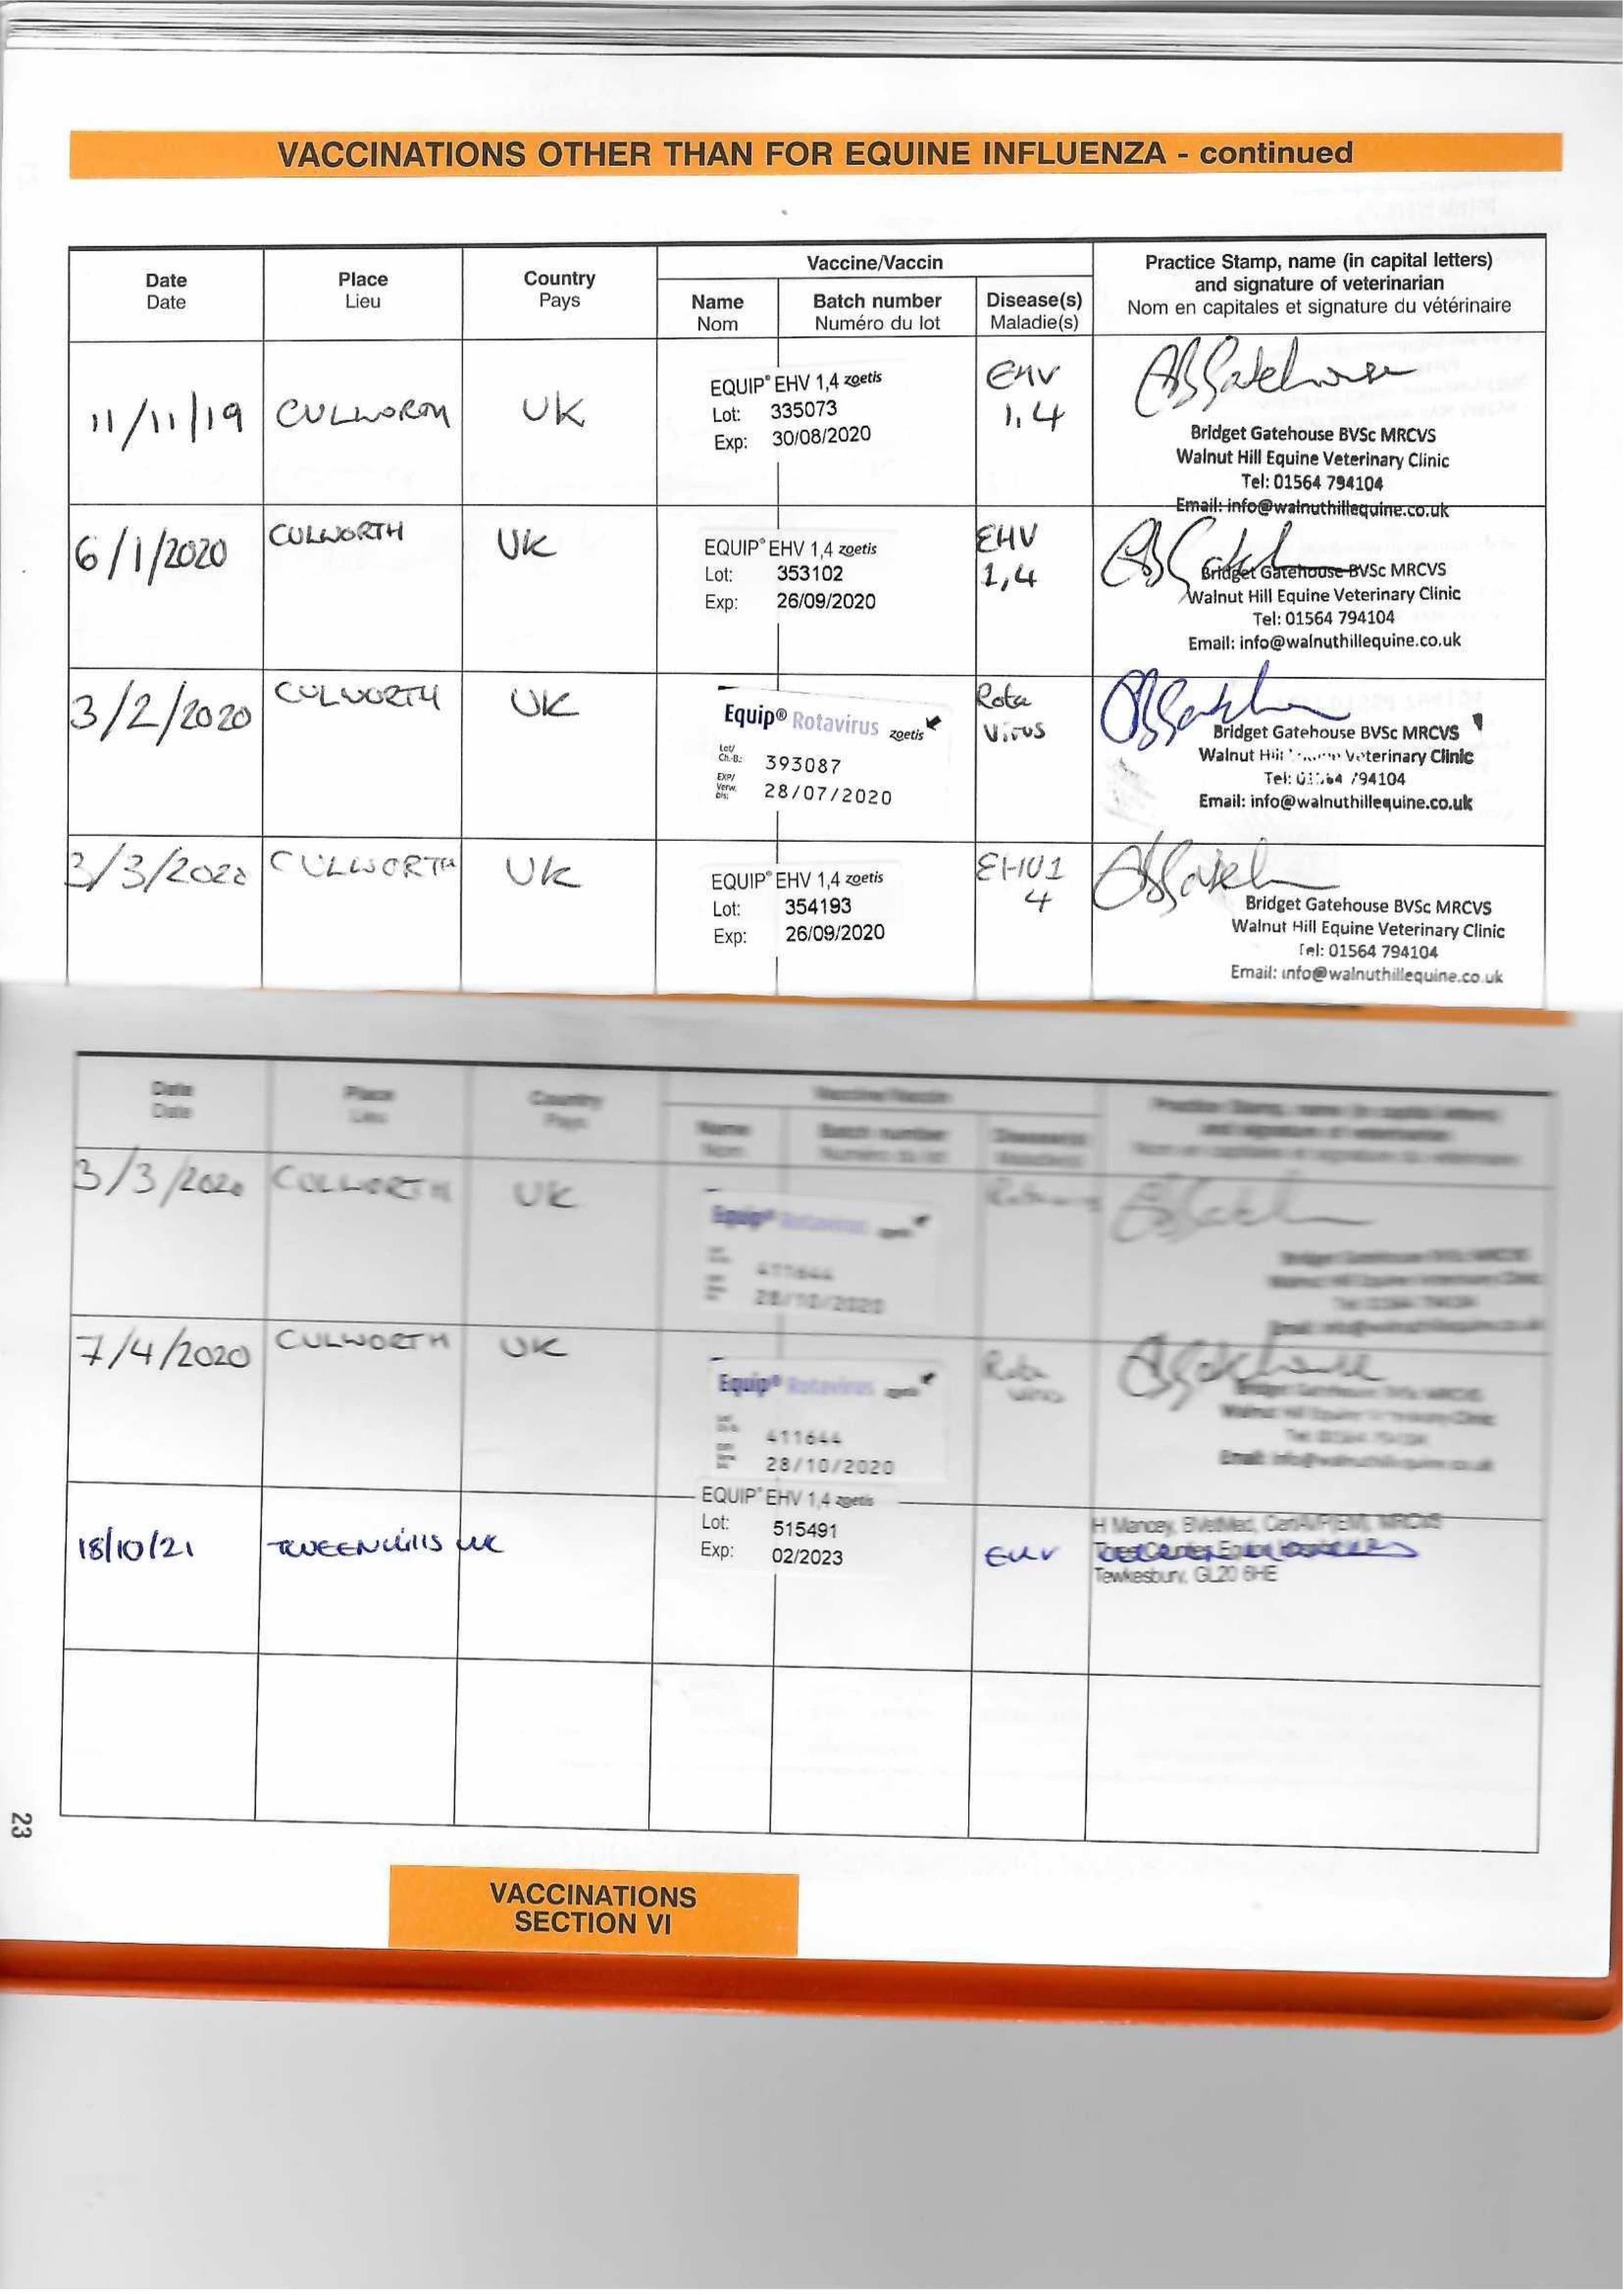 VACCINATIONS OTHER THAN FOR EQUINE INFLUENZA - continued
Date
Date
Place
Lieu
Country
Pays
Vaccine/Vaccin
Name
Nom
Batch number
Numéro du lot
Disease(s)
Maladie(s)
Practice Stamp, name (in capital letters)
and signature of veterinarian
Nom en capitales et signature du vétérinaire
11/11/19
CULWORTH
UK
EQUIP® EHV 1,4 zoetis
Lot: 335073
Exp: 30/08/2020
EHV
1,4
Bridget Gatehouse BVSc MRCVS
Walnut Hill Equine Veterinary Clinic
Tel: 01564 794104
Email: info@walnuthillequine.co.uk
6/1/2020
CULWORTH
UK
EQUIP® EHV 1,4 zoetis
Lot: 353102
Exp: 26/09/2020
EHV
1,4
Bridget Gatehouse BVSc MRCVS
Walnut Hill Equine Veterinary Clinic
Tel: 01564 794104
Email: info@walnuthillequine.co.uk
3/2/2020
CULWORTH
UK
Equip® Rotavirus zoetis
Lot/
Ch.-B.: 393087
EXP/
Verw.
bis: 28/07/2020
Rota
Virus
Bridget Gatehouse BVSc MRCVS
Walnut Hill Veterinary Clinic
Tel: 01564 794104
Email: info@walnuthillequine.co.uk
3/3/2020
CULWORTH
UK
EQUIP® EHV 1,4 zoetis
Lot: 354193
Exp: 26/09/2020
EHV1
4
Bridget Gatehouse BVSc MRCVS
Walnut Hill Equine Veterinary Clinic
Tel: 01564 794104
Email: info@walnuthillequine.co.uk
Date
Date
Place
Lieu
Country
Pays
Vaccine/Vaccin
Name
Nom
Batch number
Numéro du lot
Disease(s)
Maladie(s)
Practice Stamp, name (in capital letters)
and signature of veterinarian
Nom en capitales et signature du vétérinaire
3/3/2020
CULWORTH
UK
Equip® Rotavirus zoetis
411644
28/10/2020
7/4/2020
CULWORTH
UK
Equip® Rotavirus zoetis
411644
28/10/2020
Rota
virus
18/10/21
TWEENHILLS
UK
EQUIP® EHV 1,4 zoetis
Lot: 515491
Exp: 02/2023
EHV
H Mancey, BVetMed, CertAVP(EM), MRCVS
Tewkesbury, GL20 6HE
23
VACCINATIONS
SECTION VI